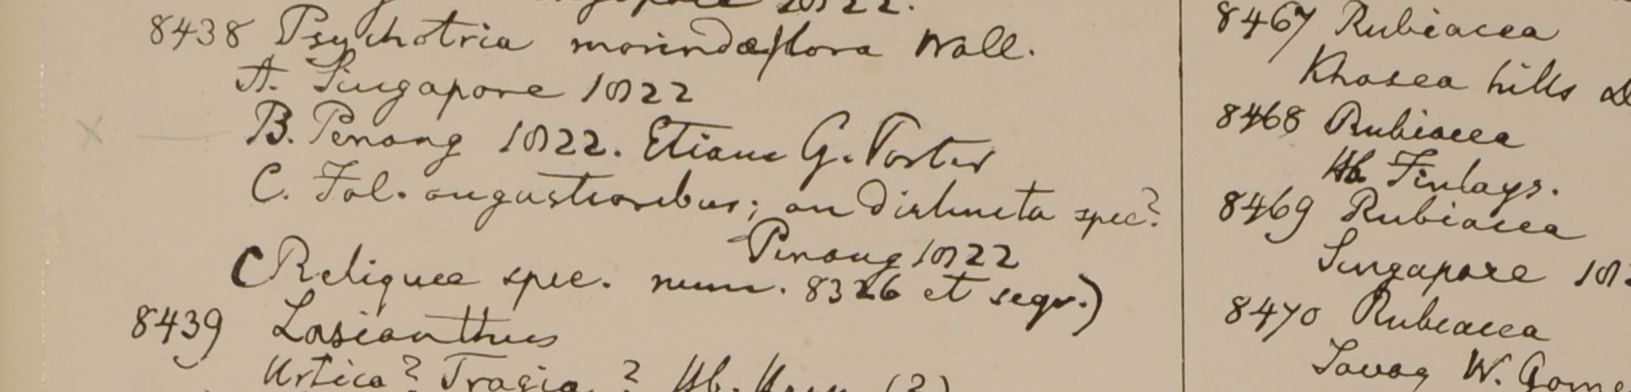 Singapore 1822.
8438 Psychotria morindæflora Wall.
A. Singapore 1822
B. Penang 1822. Etiam G. Porter
C. Fol. angustioribus; an distincta spec?
Penang 1822
(Reliquae spec. num. 8326 et seqr.)
8439 Lasianthus
Urtica? Tragia ? Hb.
8467 Rubiacea
Khasea hills
8468 Rubiacea
Hb Finlays.
8469 Rubiacea
Singapore
8470 Rubiacea
W. Gome